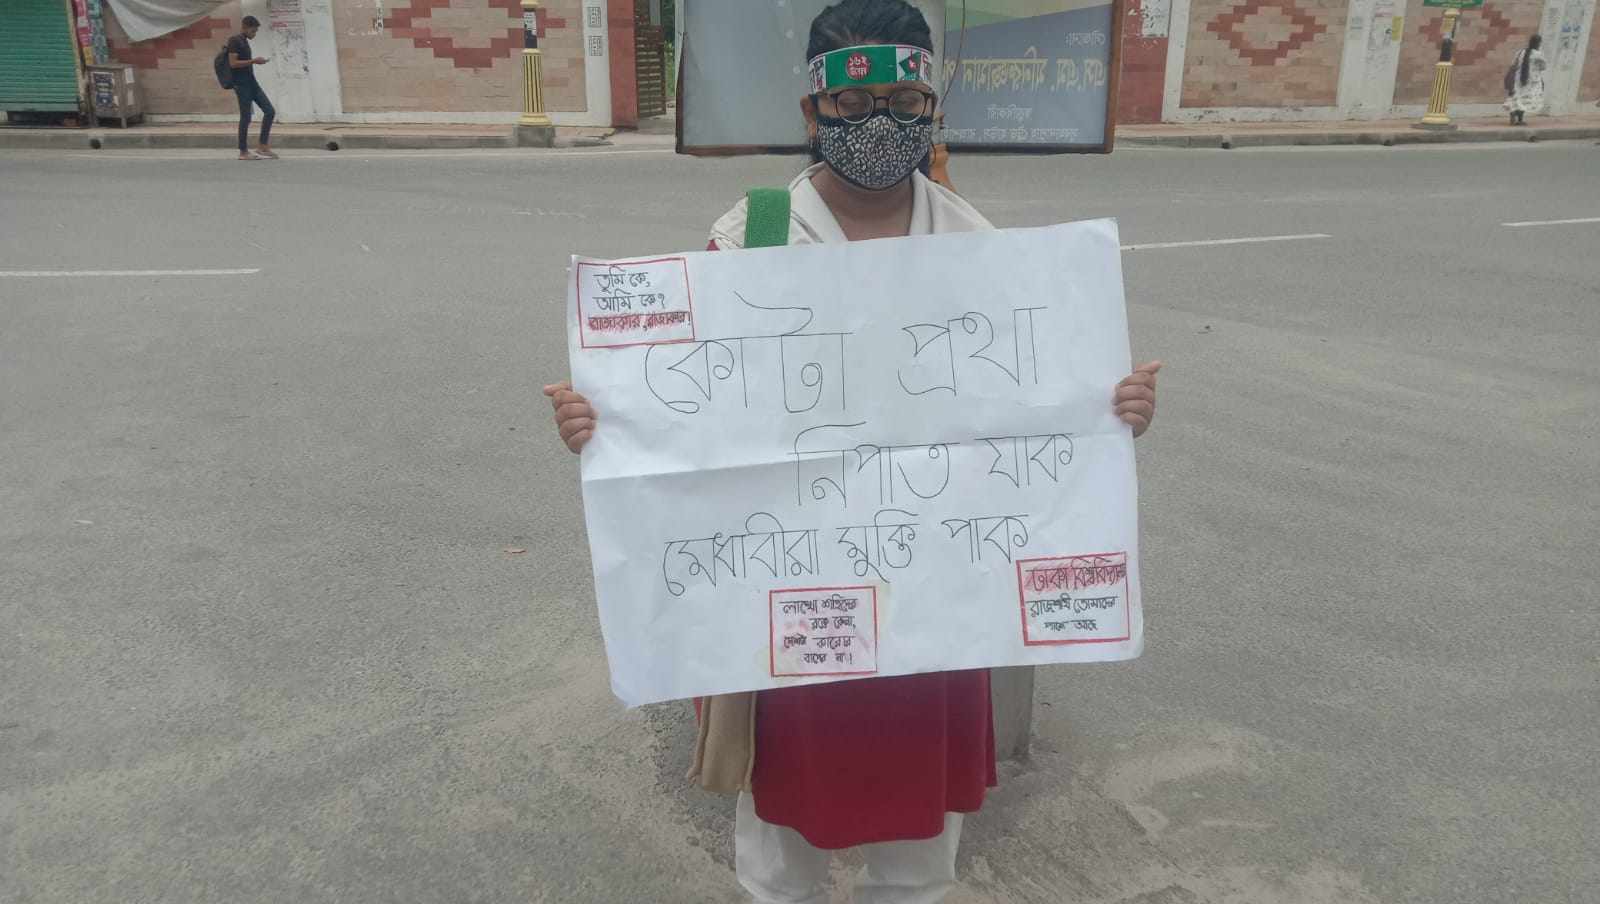 তুমি কে,
আমি কে?
রাজাকার, রাজাকার!
কোটা প্রথা
নিপাত যাক
মেধাবীরা মুক্তি পাক
লাখো শহিদের
রক্তে কেনা,
দেশটা কারোর
বাপের না!
ঢাকা বিশ্ববিদ্যালয়
রাজশাহী তোমাদের
পাশে আছে